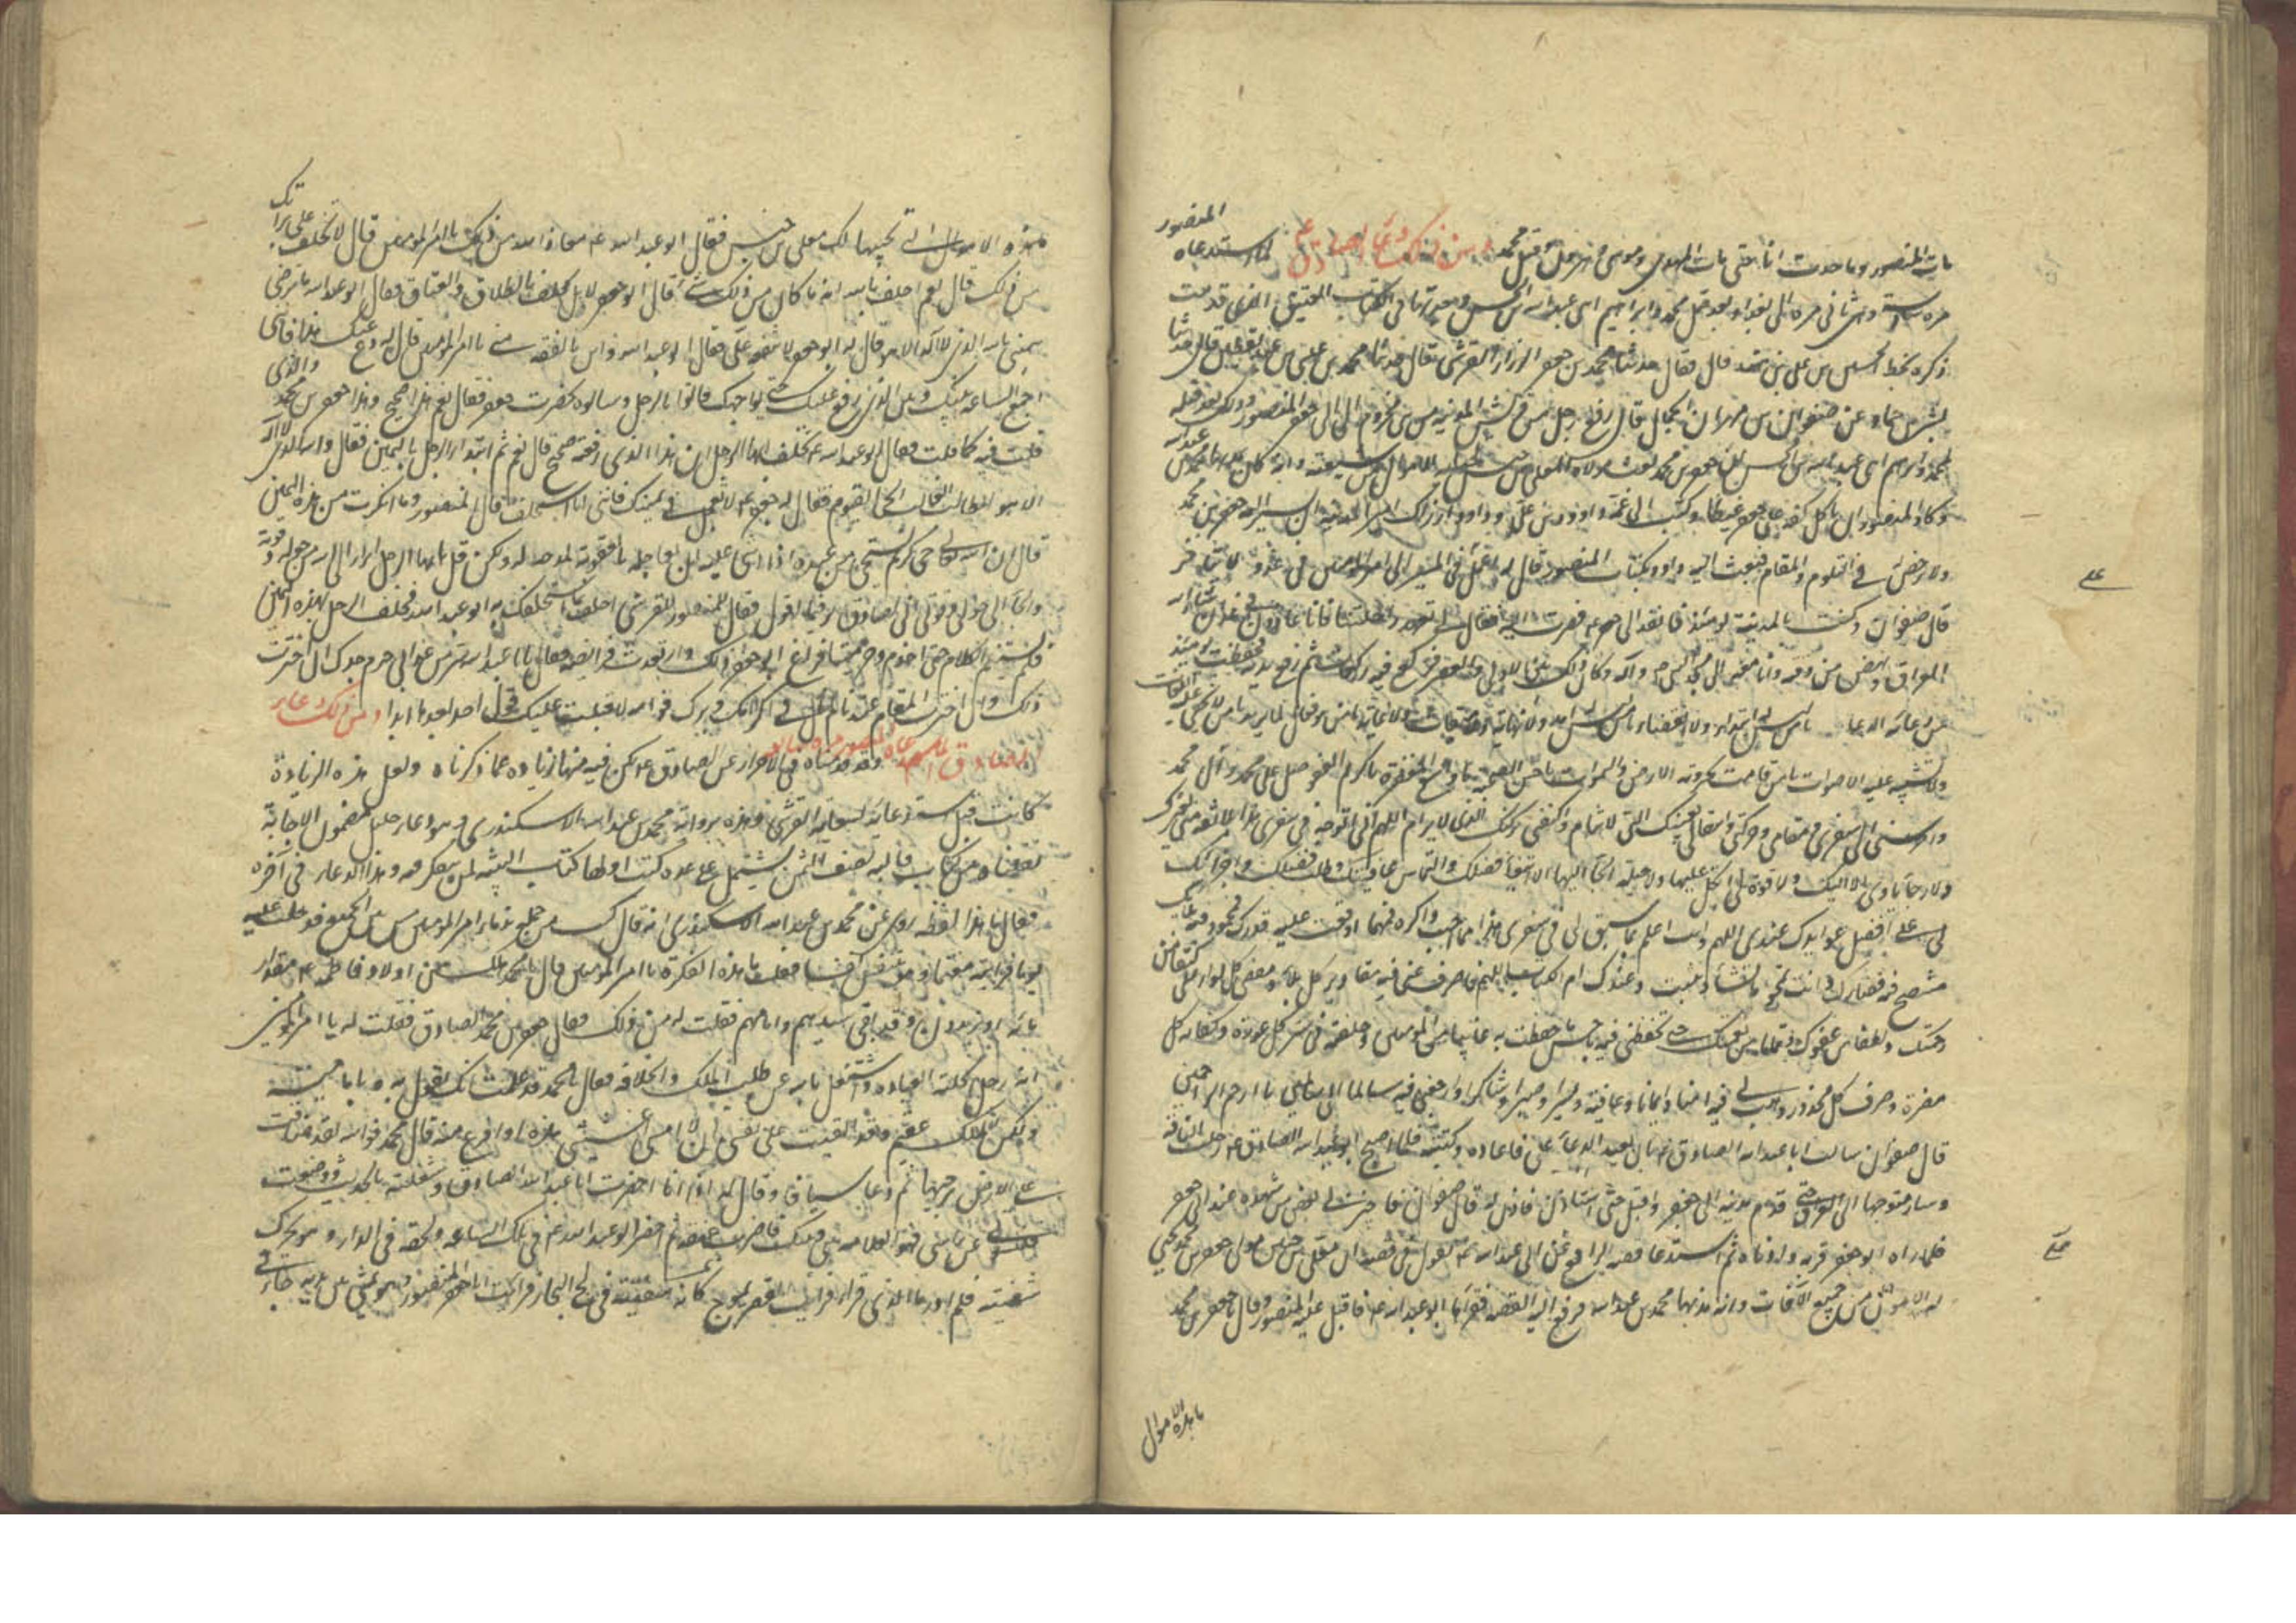 مات المنصور وما حدث انا بقى مات المهدى وموسى وهرون وقتل محمد ومن ذلك دعاء الصادق ع لما استدعاه المنصور
مرة سادسة وهى ثانى مرة الى بغداد بعد قتل محمد وابراهيم ابنى عبد الله بن الحسن وجدتها فى الكتاب العتيق الذى قدمت
ذكره بخط الحسين بن على بن هند قال فقال حدثنا محمد بن جعفر الرزاز القرشى قال حدثنا محمد بن عيسى بن عبيد بن يقطين قال حدثنا
بشير بن حماد عن صفوان بن مهران الجمال قال رفع رجل من قريش المدينة من بنى مخزوم الى ابى جعفر المنصور وذلك بعد قتله
لمحمد وابراهيم ابنى عبد الله بن الحسن ان جعفر بن محمد بعث مولاه المعلى بن خنيس لجباية الاموال من شيعته وانه كان يمد بها محمد بن عبد الله
وكاد المنصور ان ياكل كفه على جعفر غيظا وكتب الى عمه داود بن على وداود اذ ذاك امير المدينة ان يسير اليه جعفر بن محمد
ولا يرخص له فى التلوم والمقام فبعث اليه داود بكتاب المنصور فقال له اعمل فى المسير الى امير المؤمنين فى غد ولا تتاخر
قال صفوان وكنت بالمدينة يومئذ فانفذ الى جعفر ع فصرت اليه فقال لى تعهد راحلتنا فانا غادون فى غد ان شاء الله
العراق ونهض من وقته وانا معه الى مسجد النبى ص وآله وكان ذلك بين الاولى والعصر فركع فيه ركعات ثم رفع يديه فحفظت يومئذ
من دعائه الدعا يا من ليس له ابتداء ولا انقضاء يا من ليس له امد ولا نهاية ولا ميقات ولا غاية
ولا تشتبه عليه الاصوات يا من قامت بجبروته الارض والسموات يا حسن الصحبة يا واسع المغفرة يا كريم العفو صل على محمد وآل محمد
واحرسنى فى سفرى ومقامى وحركتى وانتقالى بعينك التى لا تنام واكنفنى بركنك الذى لا يرام اللهم انى اتوجه فى سفرى هذا بلا ثقة منى بغيرك
ولا رجاء ياوى بى الا اليك ولا قوة لى اتكل عليها ولا حيلة الجا اليها الا ابتغاء فضلك والتماس عافيتك وطلب فضلك واجرائك
لى على افضل عوايدك عندى اللهم وانت اعلم بما سبق لى فى سفرى هذا مما احب واكره فمهما اوقعت عليه قدرك فمحمود فيه بلاؤك
متضح فيه قضاؤك وانت تمحو ما تشاء وتثبت وعندك ام الكتاب اللهم فاصرف عنى فيه مقادير كل بلاء ومقضى كل لاواء وابسط على كنفا من
رحمتك ولطفا من عفوك وتماما من نعمتك حتى تحفظنى فيه باحسن ما حفظت به غائبا من المؤمنين وخلفته فى ستر كل عورة وكفاية كل
مضرة وصرف كل محذور وهب لى فيه امنا وايمانا وعافية ويسرا وصبرا وشكرا وارجعنى فيه سالما الى سالمين يا ارحم الراحمين
قال صفوان سالت ابا عبد الله الصادق ع بان يعيد الدعاء على فاعاده وكتبته فلما اصبح ابو عبد الله الصادق ع رحلت له الناقة
وسار متوجها الى العراق حتى قدم مدينة ابى جعفر واقبل حتى استاذن فاذن له قال صفوان فاخبرنى بعض من شهده عند ابى جعفر
فلما راه ابو جعفر قربه وادناه ثم استدعا قصة الرافع على ابى عبد الله ع يقول فى قصته ان معلى بن خنيس مولى جعفر بن محمد يجبى
له الاموال من جميع الآفاق وانه امد بها محمد بن عبد الله فرفع اليه القصة فقراها ابو عبد الله ع فاقبل عليه المنصور وقال يا جعفر بن محمد
ما هذه الاموال
هذه الاموال التى تجبيها لك معلى بن خنيس فقال ابو عبد الله ع معاذ الله من ذلك يا امير المؤمنين قال لا تحلف على براءتك
من ذلك قال نعم احلف بالله انه ما كان من ذلك شئ قال ابو جعفر لا بل تحلف بالطلاق والعتاق فقال ابو عبد الله ما ترضى
يمينى بالله الذى لا اله الا هو قال له ابو جعفر لا تتفقه على فقال ابو عبد الله واين يذهب بالفقه منى يا امير المؤمنين قال له دع عنك هذا فانى
اجمع الساعة بينك وبين الذى رفع عليك حتى يواجهك فاتوا بالرجل وسالوه بحضرت جعفر فقال نعم هذا صحيح وهذا جعفر بن محمد والذى
قلت فيه كما قلت فقال ابو عبد الله ع تحلف ايها الرجل ان هذا الذى رفعته صحيح قال نعم ثم ابتدا الرجل باليمين فقال والله الذى لا اله
الا هو الطالب الغالب الحى القيوم فقال له جعفر ع لا تعجل فى يمينك فانى انا استحلف قال المنصور وما انكرت من هذه اليمين
قال ان الله تعالى حى كريم يستحيى من عبده اذا اثنى عليه ان يعاجله بالعقوبة لمدحه له ولكن قل يا ايها الرجل ابرا الى الله من حوله وقوته
والجا الى حولى وقوتى انى لصادق بر فيما اقول فقال المنصور للقرشى احلف بما استحلفك به ابو عبد الله فحلف الرجل بهذه اليمين
فلم يستتم الكلام حتى اجذم وخر ميتا فراع ابو جعفر ذلك وارتعدت فرائصه فقال يا ابا عبد الله سر من غد الى حرم جدك ان اخترت
ذلك وان اخترت المقام عندنا لم نال فى اكرامك وبرك فوالله لا قبلت عليك قول احد بعدها ابدا ومن ذلك دعاء
الصادق ع لما استدعاه المنصور مرة سابعة وقد قدمناه فى الاحراز عن الصادق ع لكن فيه هاهنا زيادة عما ذكرناه ولعل هذه الزيادة
كانت قبل استدعائه لسعاية القرشى وهذه برواية محمد بن عبد الله الاسكندرى وهو دعاء جليل مضمون الاجابة
نقلناه من كتاب قالبه نصف الثمن يشتمل على عدة كتب اولها كتاب التنبيه لمن يتفكر فيه وهذا الدعاء فى آخره
فقال ما هذا لفظه روى عن محمد بن عبد الله الاسكندرى انه قال كنت من جملة ندماء امير المؤمنين من بين الجميع فدخلت عليه
يوما فرايته مغتما وهو يتنفس فقلت ما هذه الفكرة يا امير المؤمنين قال يا محمد لقد هلك من اولاد فاطمة ع مقدار
مائة او يزيدون وقد بقى سيدهم وامامهم فقلت له من ذلك فقال جعفر بن محمد الصادق فقلت له يا امير المؤمنين
انه رجل انحلته العبادة واشتغل بالله عن طلب الملك والخلافة فقال يا محمد قد علمت انك تقول به وبامامته
ولكن الملك عقيم وقد آليت على نفسى ان لا امسى عشيتى هذه او افرغ منه قال محمد فوالله لقد ضاقت
على الارض برحبها ثم دعا سيافا وقال له اذا انا احضرت ابا عبد الله الصادق وشغلته بالحديث ووضعت
قلنسوتى عن راسى فهو العلامة بينى وبينك فاضرب عنقه ثم احضر ابو عبد الله ع فى تلك الساعة ولحقته فى الدار وهو يحرك
شفتيه فلم ادر ما الذى قرا فرايت القصر يموج كانه سفينة فى لجج البحار فرايت ابا جعفر المنصور وهو يمشى بين يديه حافى